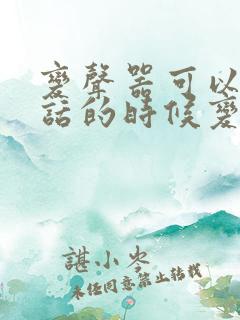 變聲器可以
話的時候變
諶小岑
未任同意禁止转载